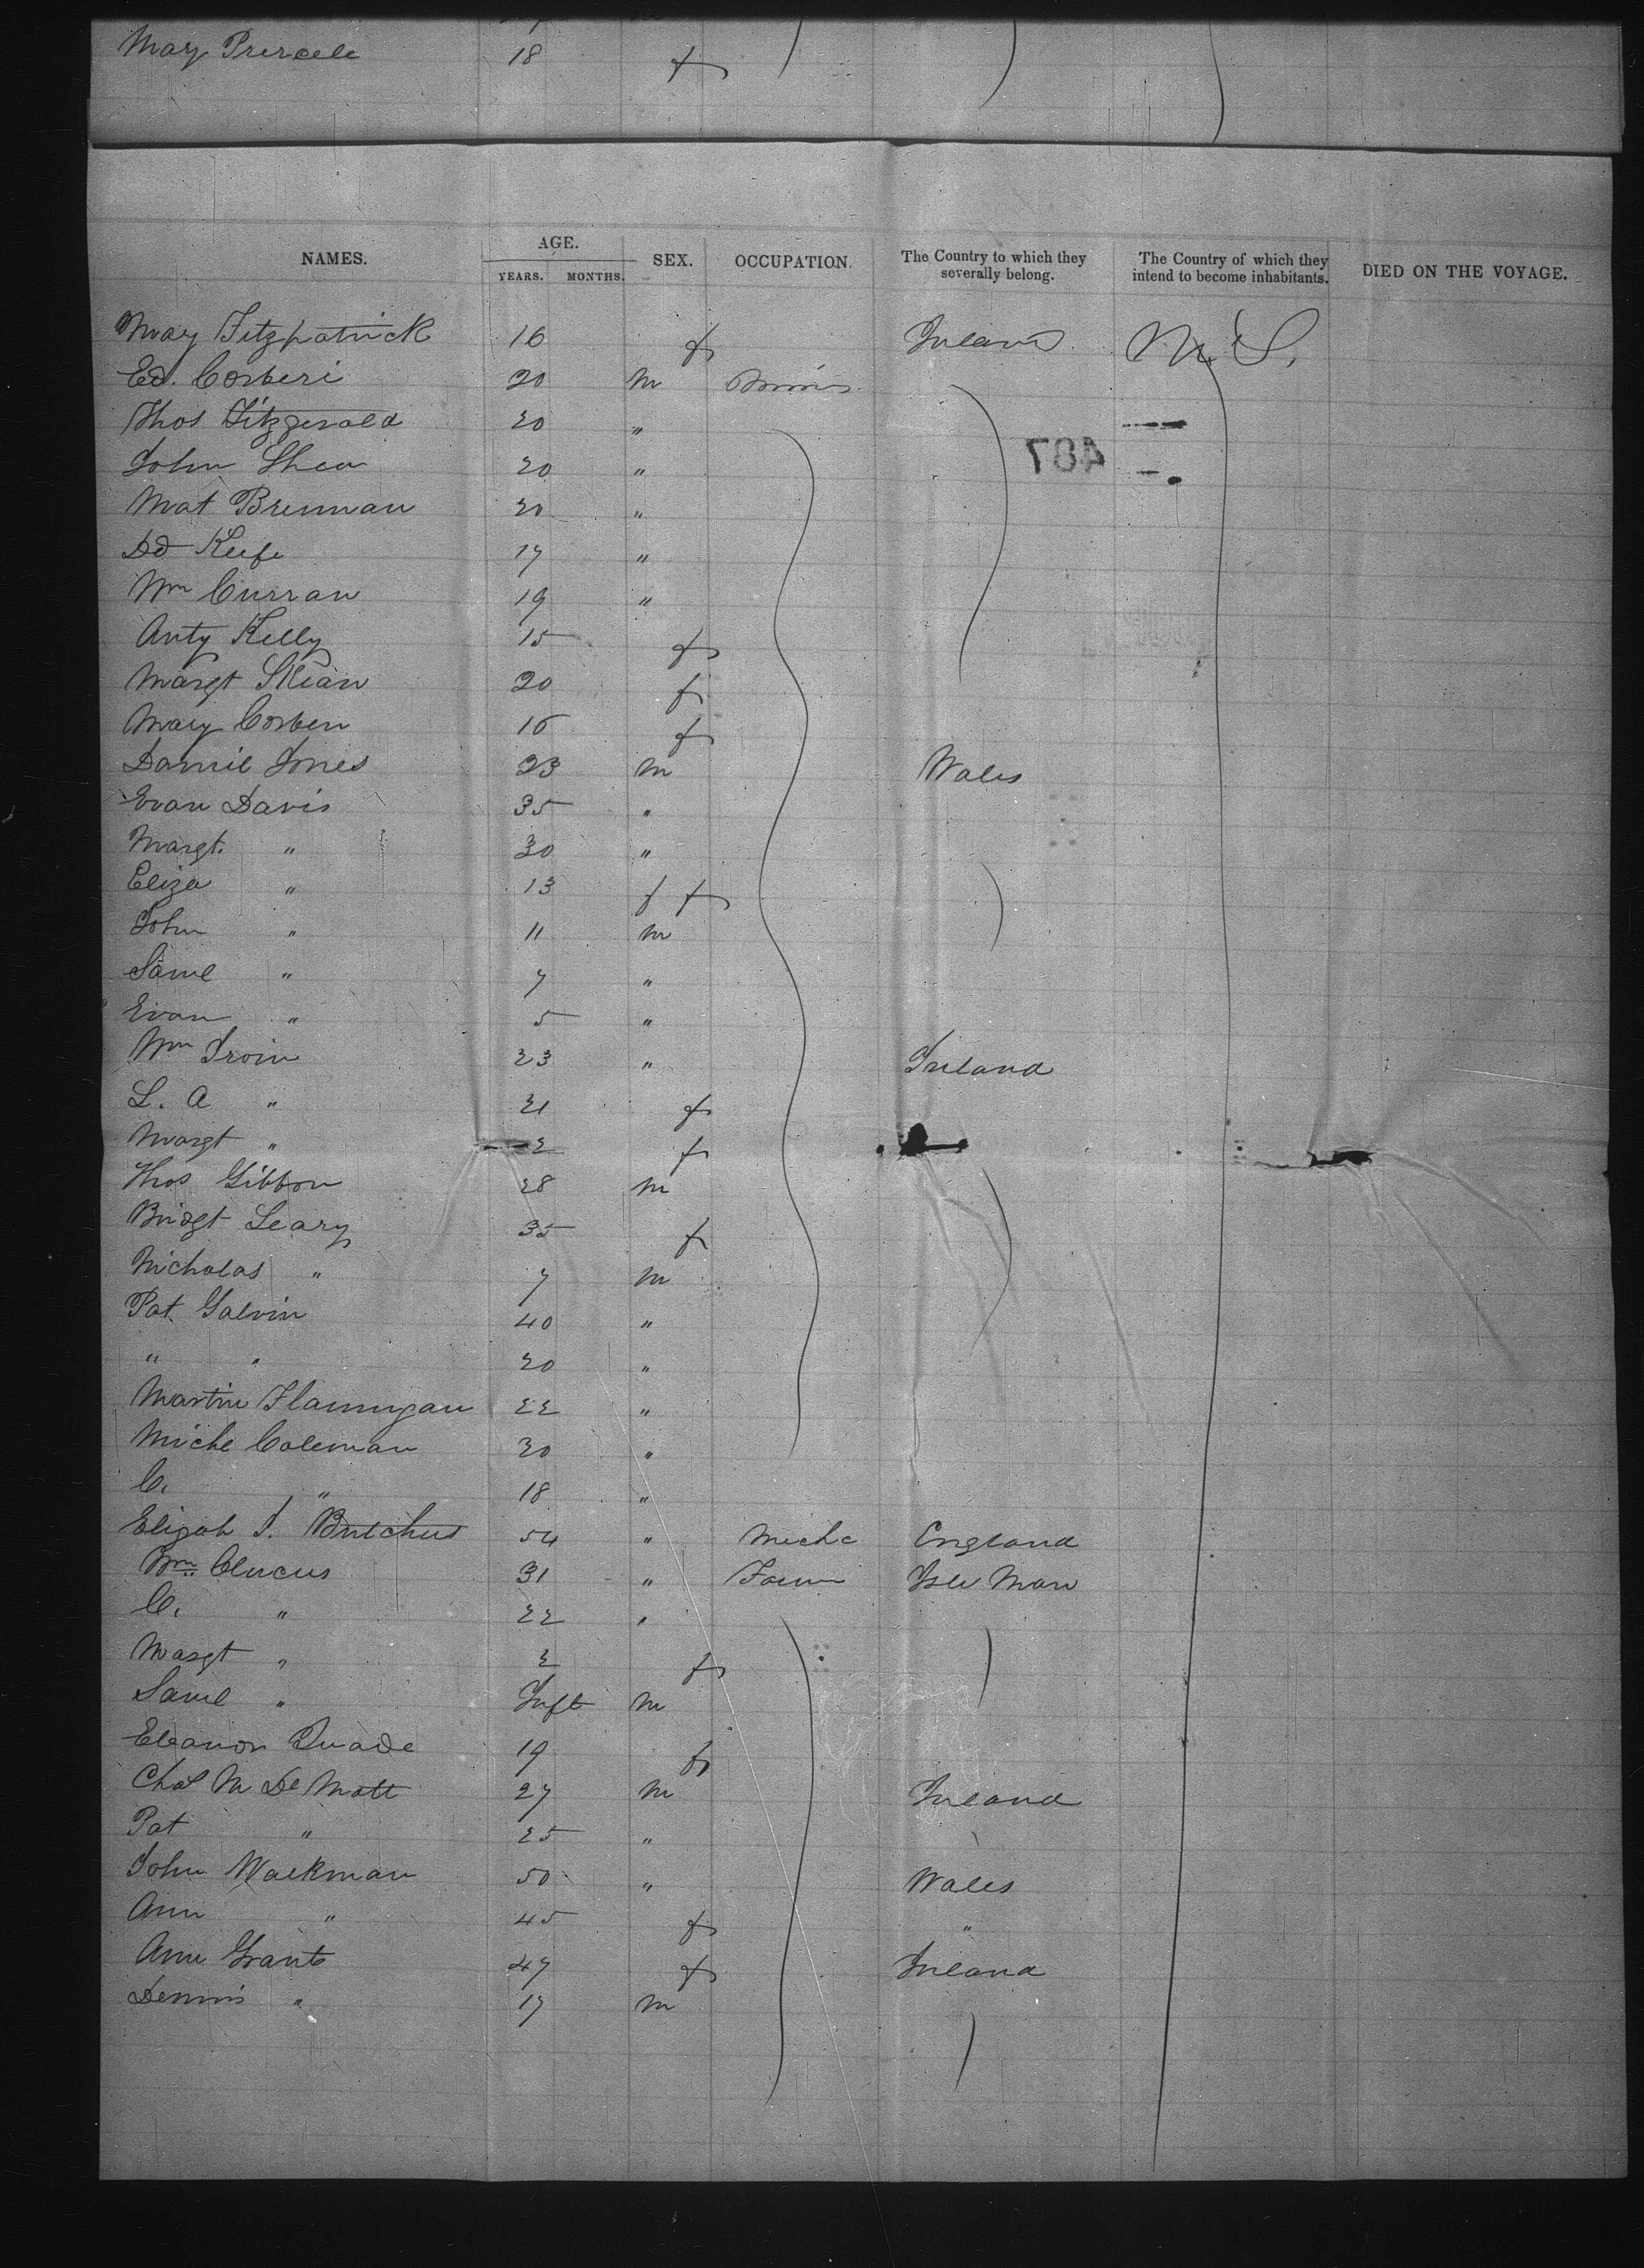 Mary Purcele 18 f
NAMES. AGE. SEX. OCCUPATION. The Country to which they severally belong. The Country of which they intend to become inhabitants. DIED ON THE VOYAGE.
YEARS. MONTHS.
Mary Fitzpatrick 16 f Ireland U.S.
Ed. Corberi 20 m
Thos Fitzgerald 20 "
487
John Shea 20 "
Mat Brennan 20 "
Ed Keefe 17 "
Wm Curran 19 "
Anty Kelly 15 f
Margt 20 f
Mary Corben 16 f
Daniel Jones 23 m Wales
Evan Davis 35 "
Margt. " 30 "
Eliza " 13 f f
John " 11 m
Saml " 7 "
Evan " 5 "
Wm Irvin 23 " Ireland
L. A " 21 f
Margt " 2 f
Thos Gibbon 28 m
Bridgt Leary 35 f
Nicholas " 7 m
Pat Galvin 40 "
" " 20 "
Martin Flannigan 22 "
Michl Coleman 20 "
C. " 18 "
Elijah J. Butchus 54 " Mechc England
Wm Clucus 31 " Farm Isle Man
C. " 22 "
Margt " 2 f
Saml " Inft m
Eleanor Quade 19 f
Chas McDeMott 27 m Ireland
Pat " 25 "
John Walkman 50 " Wales
Ann " 45 f "
Ann Grant 47 f Ireland
Dennis " 17 m